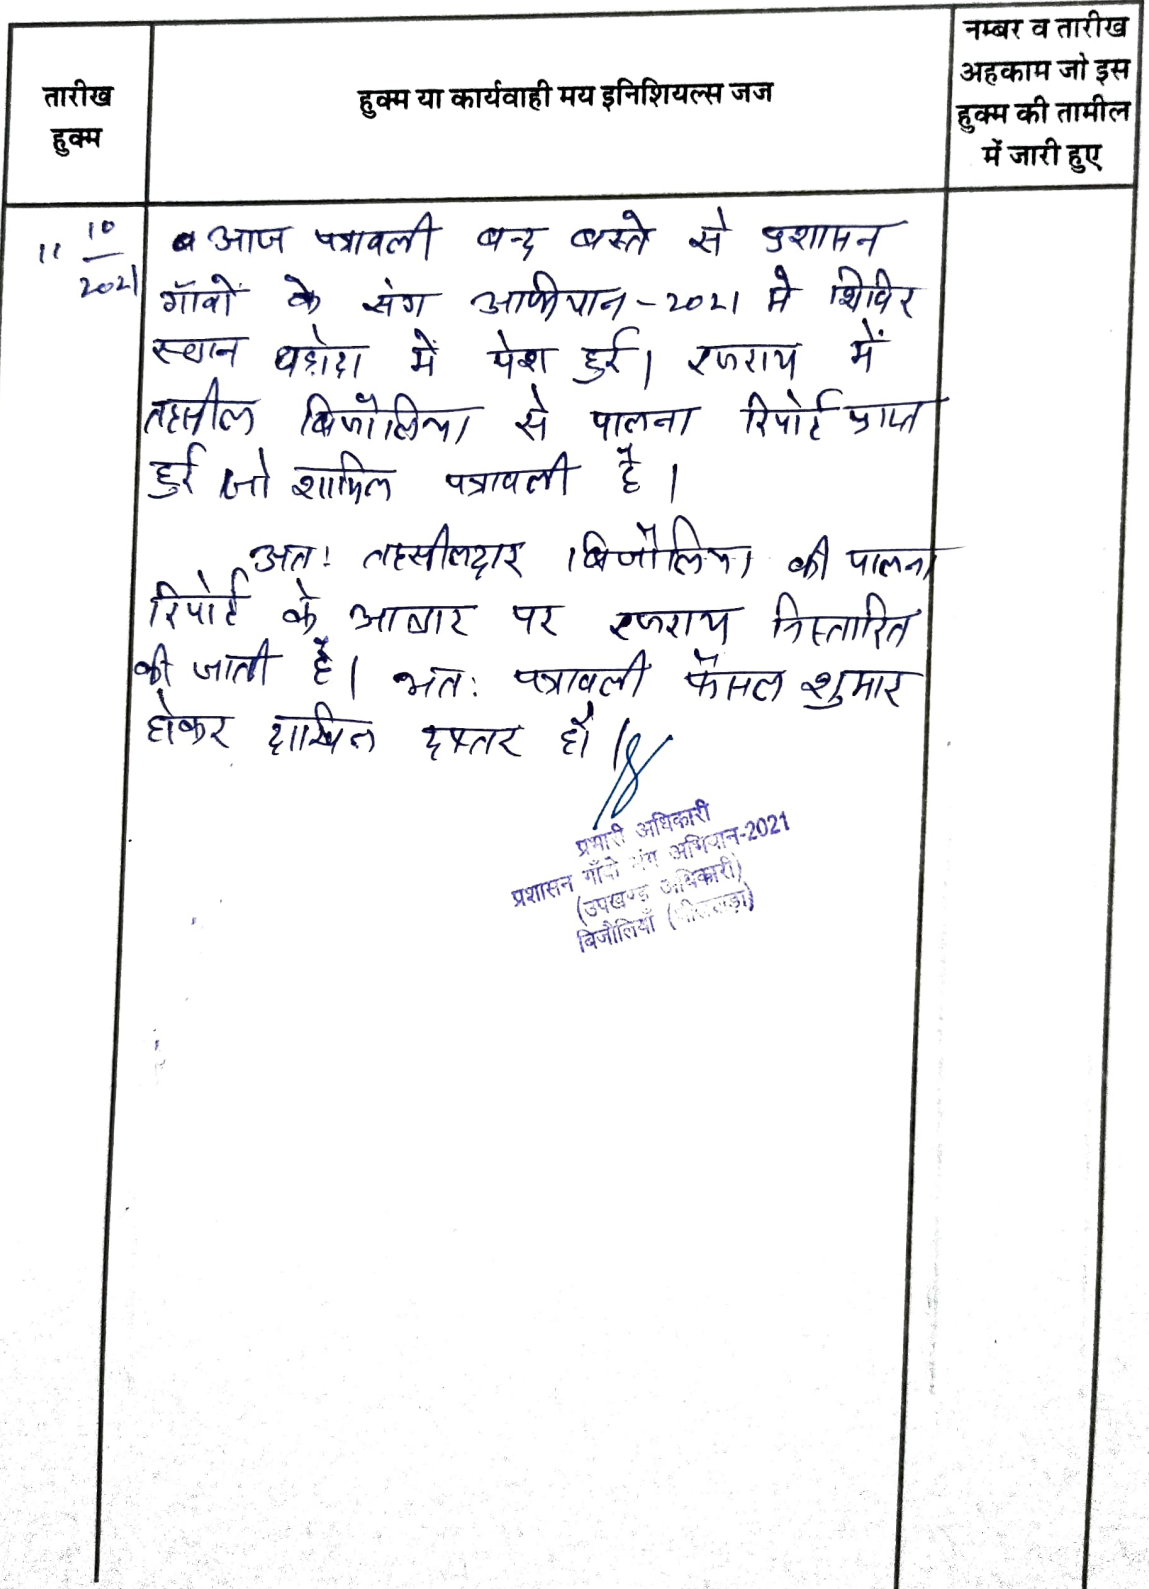 तारीख
हुक्म
हुक्म या कार्यवाही मय इनिशियल्स जज
नम्बर व तारीख
अहकाम जो इस
हुक्म की तामील
में जारी हुए
11 10
2021
आज पत्रावली बन्द बस्ते से प्रशासन
गाँवों के संग अभियान-2021 मे शिविर
स्थान में पेश हुई। इजराय में
तहसील बिजौलिया से पालना रिपोर्ट प्राप्त
हुई जो शामिल पत्रावली है।
अतः तहसीलदार बिजौलिया की पालना
रिपोर्ट के आधार पर इजराय निस्तारित
की जाती है। अतः पत्रावली फैसल शुमार
होकर दाखिल दफ्तर हो।
प्रभारी अधिकारी
प्रशासन गाँवो संग अभियान-2021
(उपखण्ड अधिकारी)
बिजौलियाँ (भीलवाड़ा)